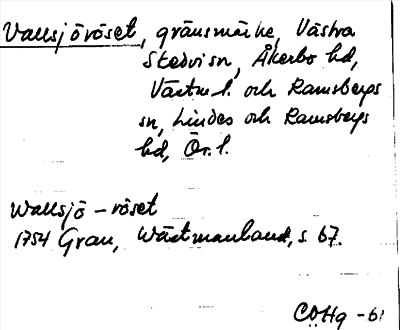 Vallsjöröset, gränsmärke, Västra
Skedvi sn, Åkerbo hd,
Västm. l. och Ramsbergs
sn, Lindes och Ramsbergs
hd, Ör. l.
Wallsjö-röset
1754 Grau, Wästmanland, s. 67.